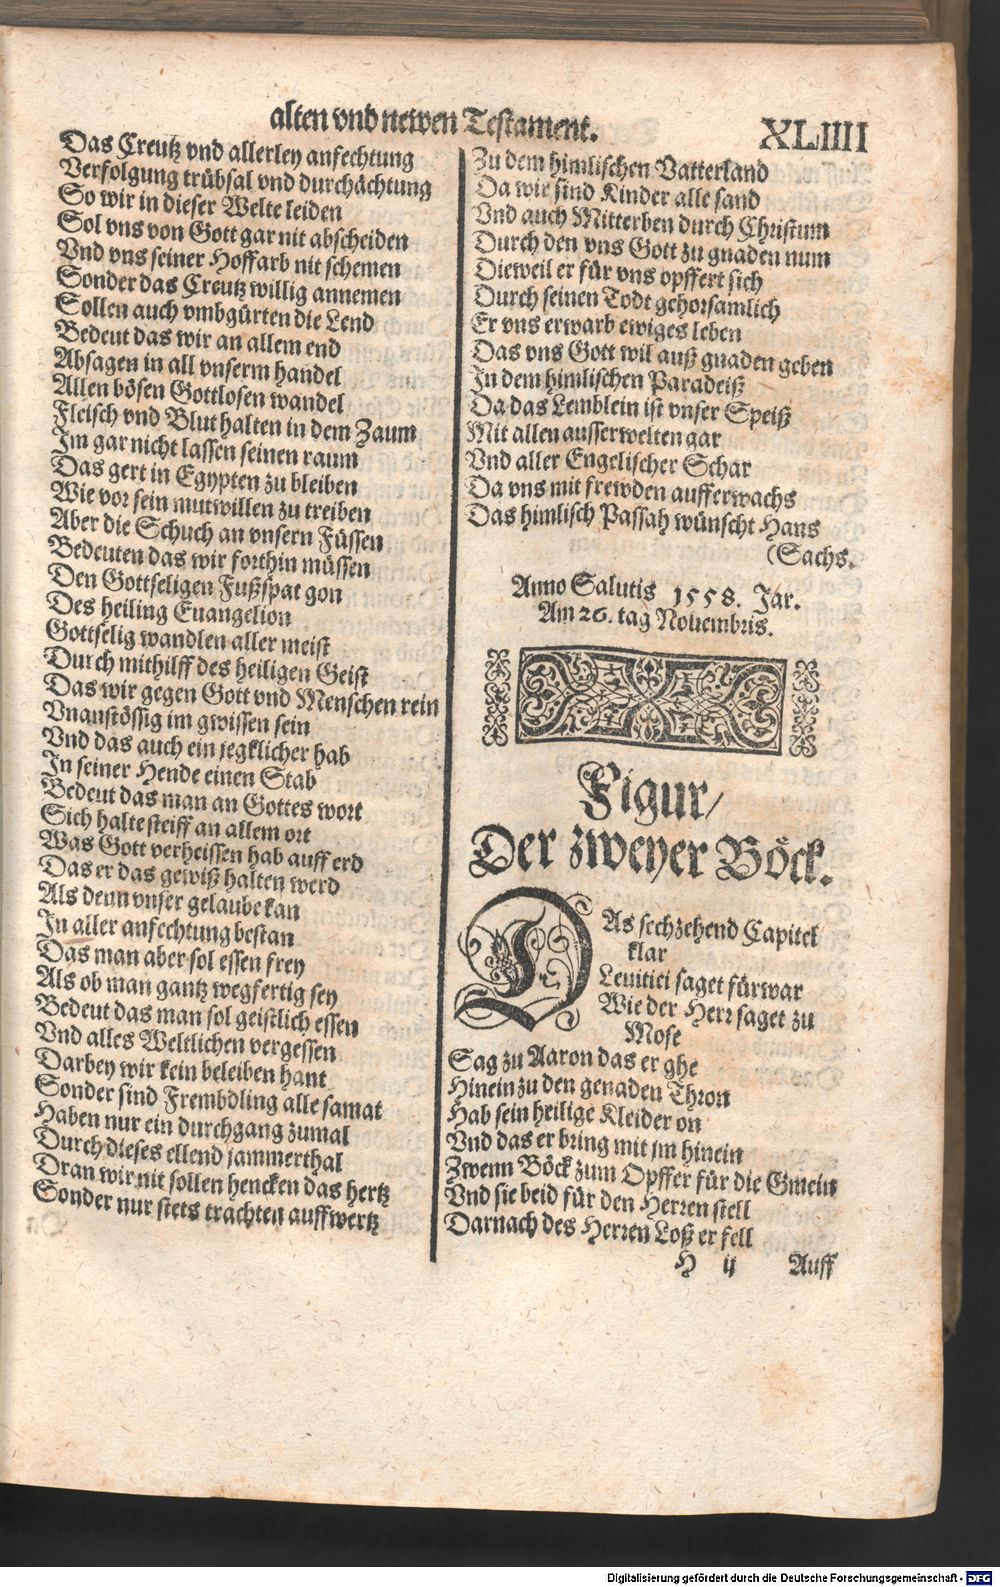 alten vnd newen Testament.
XLIIII
Das Creutz vnd allerley anfechtung
Verfolgung trübsal vnd durchächtung
So wir in dieser Welte leiden
Sol vns von Gott gar nit abscheiden
Vnd vns seiner Hoffarb nit schemen
Sonder das Creutz willig annemen
Sollen auch vmbgürten die Lend
Bedeut das wir an allem end
Absagen in all vnserm handel
Allen bösen Gottlosen wandel
Fleisch vnd Blut halten in dem Zaum
Im gar nicht lassen seinen raum
Das gert in Egypten zu bleiben
Wie vor sein mutwillen zu treiben
Aber die Schuch an vnsern Füssen
Bedeuten das wir forthin müssen
Den Gottseligen Fußspat gon
Des heiling Euangelion
Gottselig wandlen aller meist
Durch mithilff des heiligen Geist
Das wir gegen Gott vnd Menschen rein
Vnanstössig im gwissen sein
Vnd das auch ein jegklicher hab
In seiner Hende einen Stab
Bedeut das man an Gottes wort
Sich halte steiff an allem ort
Was Gott verheissen hab auff erd
Das er das gewiß halten werd
Als denn vnser gelaube kan
In aller anfechtung bestan
Das man aber sol essen frey
Als ob man gantz wegfertig sey
Bedeut das man sol geistlich essen
Vnd alles Weltlichen vergessen
Darbey wir kein beleiben hant
Sonder sind Frembdling alle samat
Haben nur ein durchgang zumal
Durch dieses ellend jammerthal
Dran wir nit sollen hencken das hertz
Sonder nur stets trachten auffwertz
Zu dem himlischen Vatterland
Da wir sind Kinder alle sand
Vnd auch Mitterben durch Christum
Durch den vns Gott zu gnaden num
Dieweil er für vns opffert sich
Durch seinen Todt gehorsamlich
Er vns erwarb ewiges leben
Das vns Gott wil auß gnaden geben
In dem himlischen Paradeiß
Da das Lemblein ist vnser Speiß
Mit allen ausserwelten gar
Vnd aller Engelischer Schar
Da vns mit frewden aufferwachs
Das himlisch Passah wünscht Hans
(Sachs.
Anno Salutis 1558. Jar.
Am 26. tag Nouembris.
Figur/
Der zweyer Böck.
DAs sechzehend Capitel
klar
Leuitici saget fürwar
Wie der Herr saget zu
Mose
Sag zu Aaron das er ghe
Hinein zu den genaden Thron
Hab sein heilige Kleider on
Vnd das er bring mit jm hinein
Zwenn Böck zum Opffer für die Gmein
Vnd sie beid für den Herren stell
Darnach des Herren Loß er fell
H ij Auff
Digitalisierung gefördert durch die Deutsche Forschungsgemeinschaft - DFG